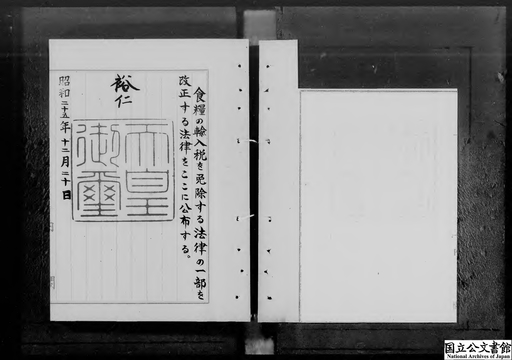 食糧の輸入税を免除する法律の一部を
改正する法律をここに公布する。
裕仁
天皇御璽
昭和二十五年十二月二十日
国立公文書館
National Archives of Japan